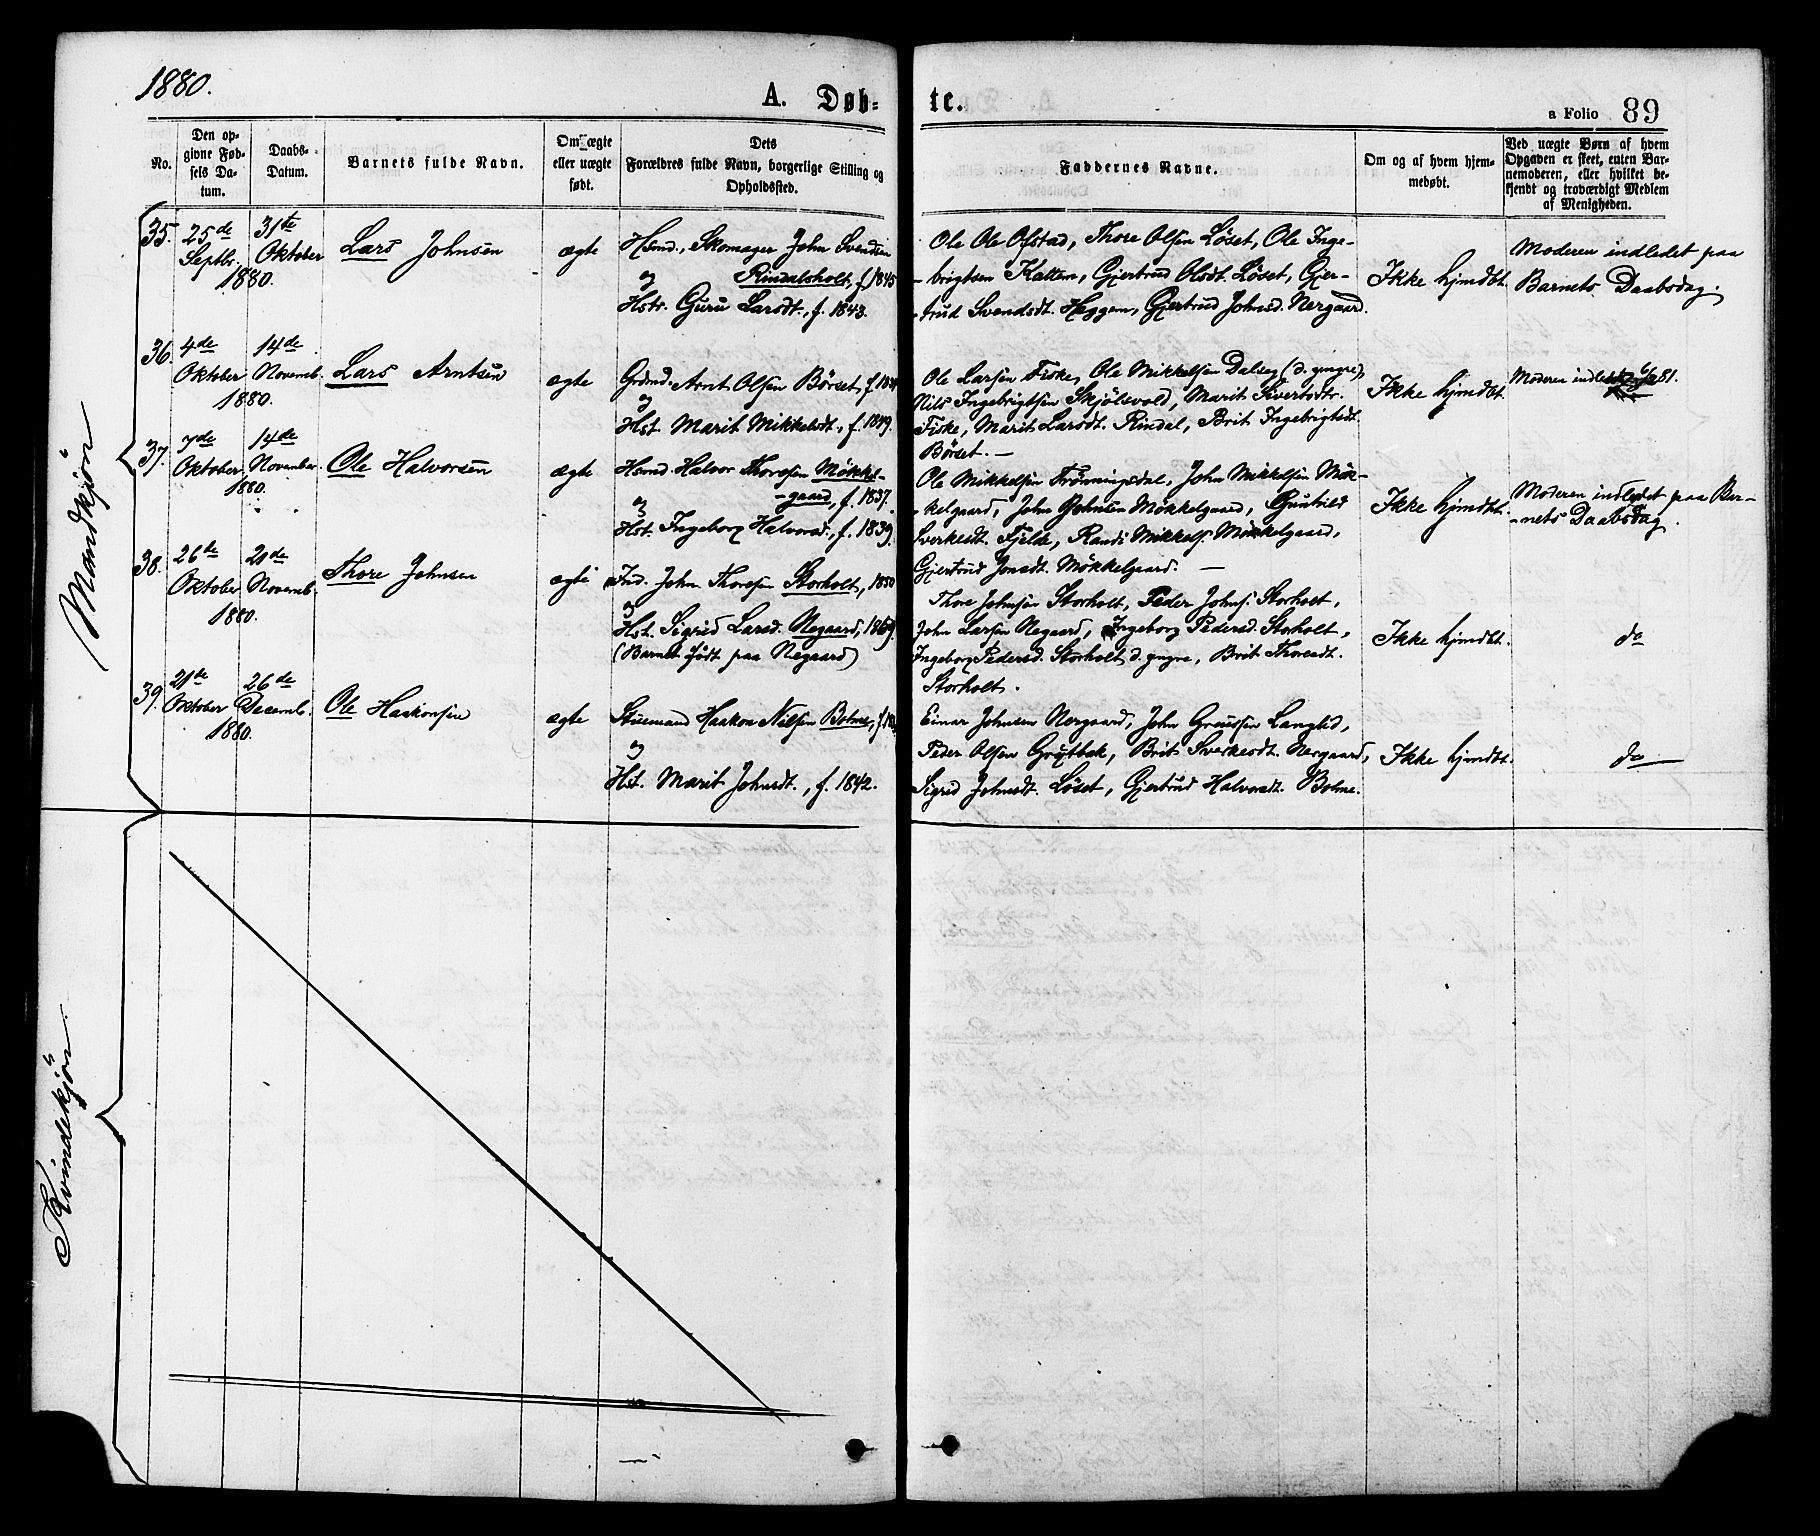 1880.
A. Døb-
te.
a Folio 89
No.
Den op-
givne Fød-
sels Da-
tum.
Daabs-
Datum.
Barnets fulde Navn.
Om ægte
eller uægte
født.
Dets
Forældres fulde Navn, borgerlige Stilling og
Opholdssted.
Faddernes Navne.
Om og af hvem hjem-
medøbt.
Ved uægte Børn af hvem
Opgaven er skeet, enten Bar-
nemoderen, eller hvilket be-
kjendt og troværdigt Medlem
af Menigheden.
Mandkjön
35.
25de
Septbr.
1880.
31te
Oktober
Lars Johnsen
ægte
Hsmd., Skomager John Svendsen
og Rindalsholt, f. 1845
Hstr. Guru Larsdt., f. 1843.
Ole Ole Ofstad, Thore Olsen Löset, Ole Inge-
-brigtsen Kattem, Gjertrud Olsdt. Löset, Gjer-
-trud Svendsdt. Heggem, Gjertrud Johnsd. Nergaard.
Ikke hjmdbt.
Moderen indledet paa
Barnets Daabsdag.
36.
4de
Oktober
1880.
14de
Novemb.
Lars Arntsen
ægte
Grdmd. Arnt Olsen Börset,
og
Hst. Marit Mikkelsdt., f. 1849.
Ole Larsen Fiske, Ole Mikkelsen Dalseg (d. yngre),
Nils Ingebrigtsen Skjölsvold, Marit Sivertsdtr.
Fiske, Marit Larsdt. Rindal, Brit Ingebrigtsdt.
Börset. —
Ikke hjmdbt.
Moderen 81.
37.
7de
Oktober
1880.
14de
November
Ole Halvorsen
ægte
Hsmd. Halvor Thoresen Mökkel-
-gaard, f. 1837.
og
Hst. Ingeborg Halvorsd., f. 1839.
Ole Mikkelsen Trönningsdal, John Mikkelsen Mök-
-kelgaard, John Johnsen Mökkelgaard, Gunhild
Sverkesdt. Fjelde, Randi Mikkels. Mökkelgaard,
Gjertrud Jonsdt. Mökkelgaard. —
Ikke hjmdbt.
Moderen indledet paa Bar-
-nets Daabsdag.
38.
26de
Oktober
1880.
21de
Novemb.
Thore Johnsen
ægte
Ind. John Thoresen Storholt, 1850
og
Hst. Sigrid Larsd. Negaard,
(Barnet födt paa Negaard)
Thore Johnsen Storholt, Peder Johns. Storholt,
John Larsen Negaard, Ingeborg Pedersd. Storholt,
Ingeborg Pedersd. Storholt d. yngre, Brit Thoresdt.
Storholt.
Ikke hjmdbt.
do
39.
21de
Oktober
1880.
26de
Decemb.
Ole Haakonsen
ægte
Stuemand Haakon Nilsen Bolme,
og
Hst. Marit Johnsdt., f. 1842.
Einar Johnsen Nergaard, John Langlid,
Peder Olsen Grytbak, Brit Sverkesdt. Nergaard,
Sigrid Johnsdt. Löset, Gjertrud Halvorsdt. Bolme.
Ikke hjmdbt.
do
Kvindekjön.